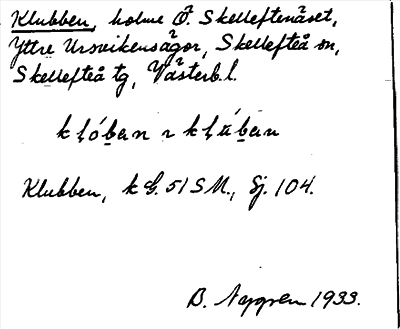 Klubben, holme Ö. Skelleftenäset,
Yttre Ursvikensägor, Skellefteå sn,
Skellefteå tg, Västerb. l.
Klubben, k G. 51 SM., Sj. 104.
B. Nygren 1933.